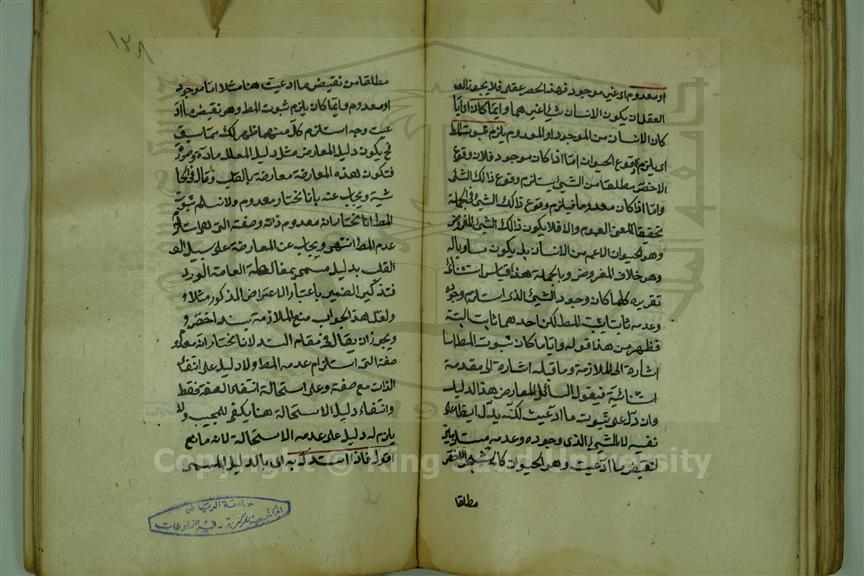 او معدوم اى غير موجود فهذا الحصر عقلى فلا يجوز الف
العقل ان يكون الانسان شيئا غيرهما وايما كان اى ايا
كان الانسان من الموجود او المعدوم يلزم ثبوت المط
اى يلزم وقوع الحيوان اما اذا كان موجود فلان وقوع
الاخص مطلقا من الشئ يستلزم وقوع ذالك الشئ
واما اذا كان معدوما فيلزم وقوع ذالك الشئ فى الجملة
تحقيقا لمعنى العموم والا فلا يكون ذالك الشئ المفروض
وهو الحيوان الاعم من الانسان بل يكون مساويا له
وهو خلاف المفروض وبالجملة هذا قياس استثنائى
تقريره كلما كان وجود الشئ الذى استلزم وجوده
وعدمه ثابتا يثبت المط لكن احدهما ثابت البتة
فظهر من هذا قوله وايا ما كان ثبوت المط
اشارة الى الملازمة وما قبله اشارة الى مقدمة
استثنائية فيقول السائل المعارض هذا الدليل
وان دل على ثبوت ما ادعيت لكنه يدل ايضا على
نفيه لان الشئ الذى وجوده وعدمه مستلزمان
لنقيض ما ادعيت وهو الحيوان كالشئ الاخص
مطلقا
١٢٨
مطلقا من نقيض ما ادعيت هنا مثلا اما موجود
او معدوم وايما كان يلزم ثبوت المط وهو نقيض ما اد
عيت وجه استلزام كل منهما ظهر لك مما سبق
فح يكون دليل المعارض مثل دليل المعلل مادة وصورة
فتكون هذه المعارضة معارضة بالقلب وقال فى الحا
شية ويجاب عنه بانا نختار معدوم ولا نسلم ثبوت
المط انا نختار انه معدوم ذاته وصفته التى هى استلزام
عدم المط انتهى ويجاب عن المعارضة على سبيل
القلب بدليل مسمى بمغالطة العامة الورود
فتذكير الضمير باعتبار الاعتراض المذكور مثلا
ولعل هذا الجواب منع الملازمة بسند اخص و
ويجوز ان يقال فى مقام السند لانا نختار انه معدوم
صفة التى استلزام عدمه المط ولا دليل على انتفاء
الذات مع صفة وعلى استحالة انتفاء الصفة فقط
وانتفاء دليل الاستحالة هنا يكفى للمجيب ولا
يلزم له دليل على عدم الاستحالة لانه مانع
اقول فاذا استدل به اى بالدليل المسمى
جامعة الرياض
المكتبة المركزية - قسم المخطوطات
Copyright © King Saud University